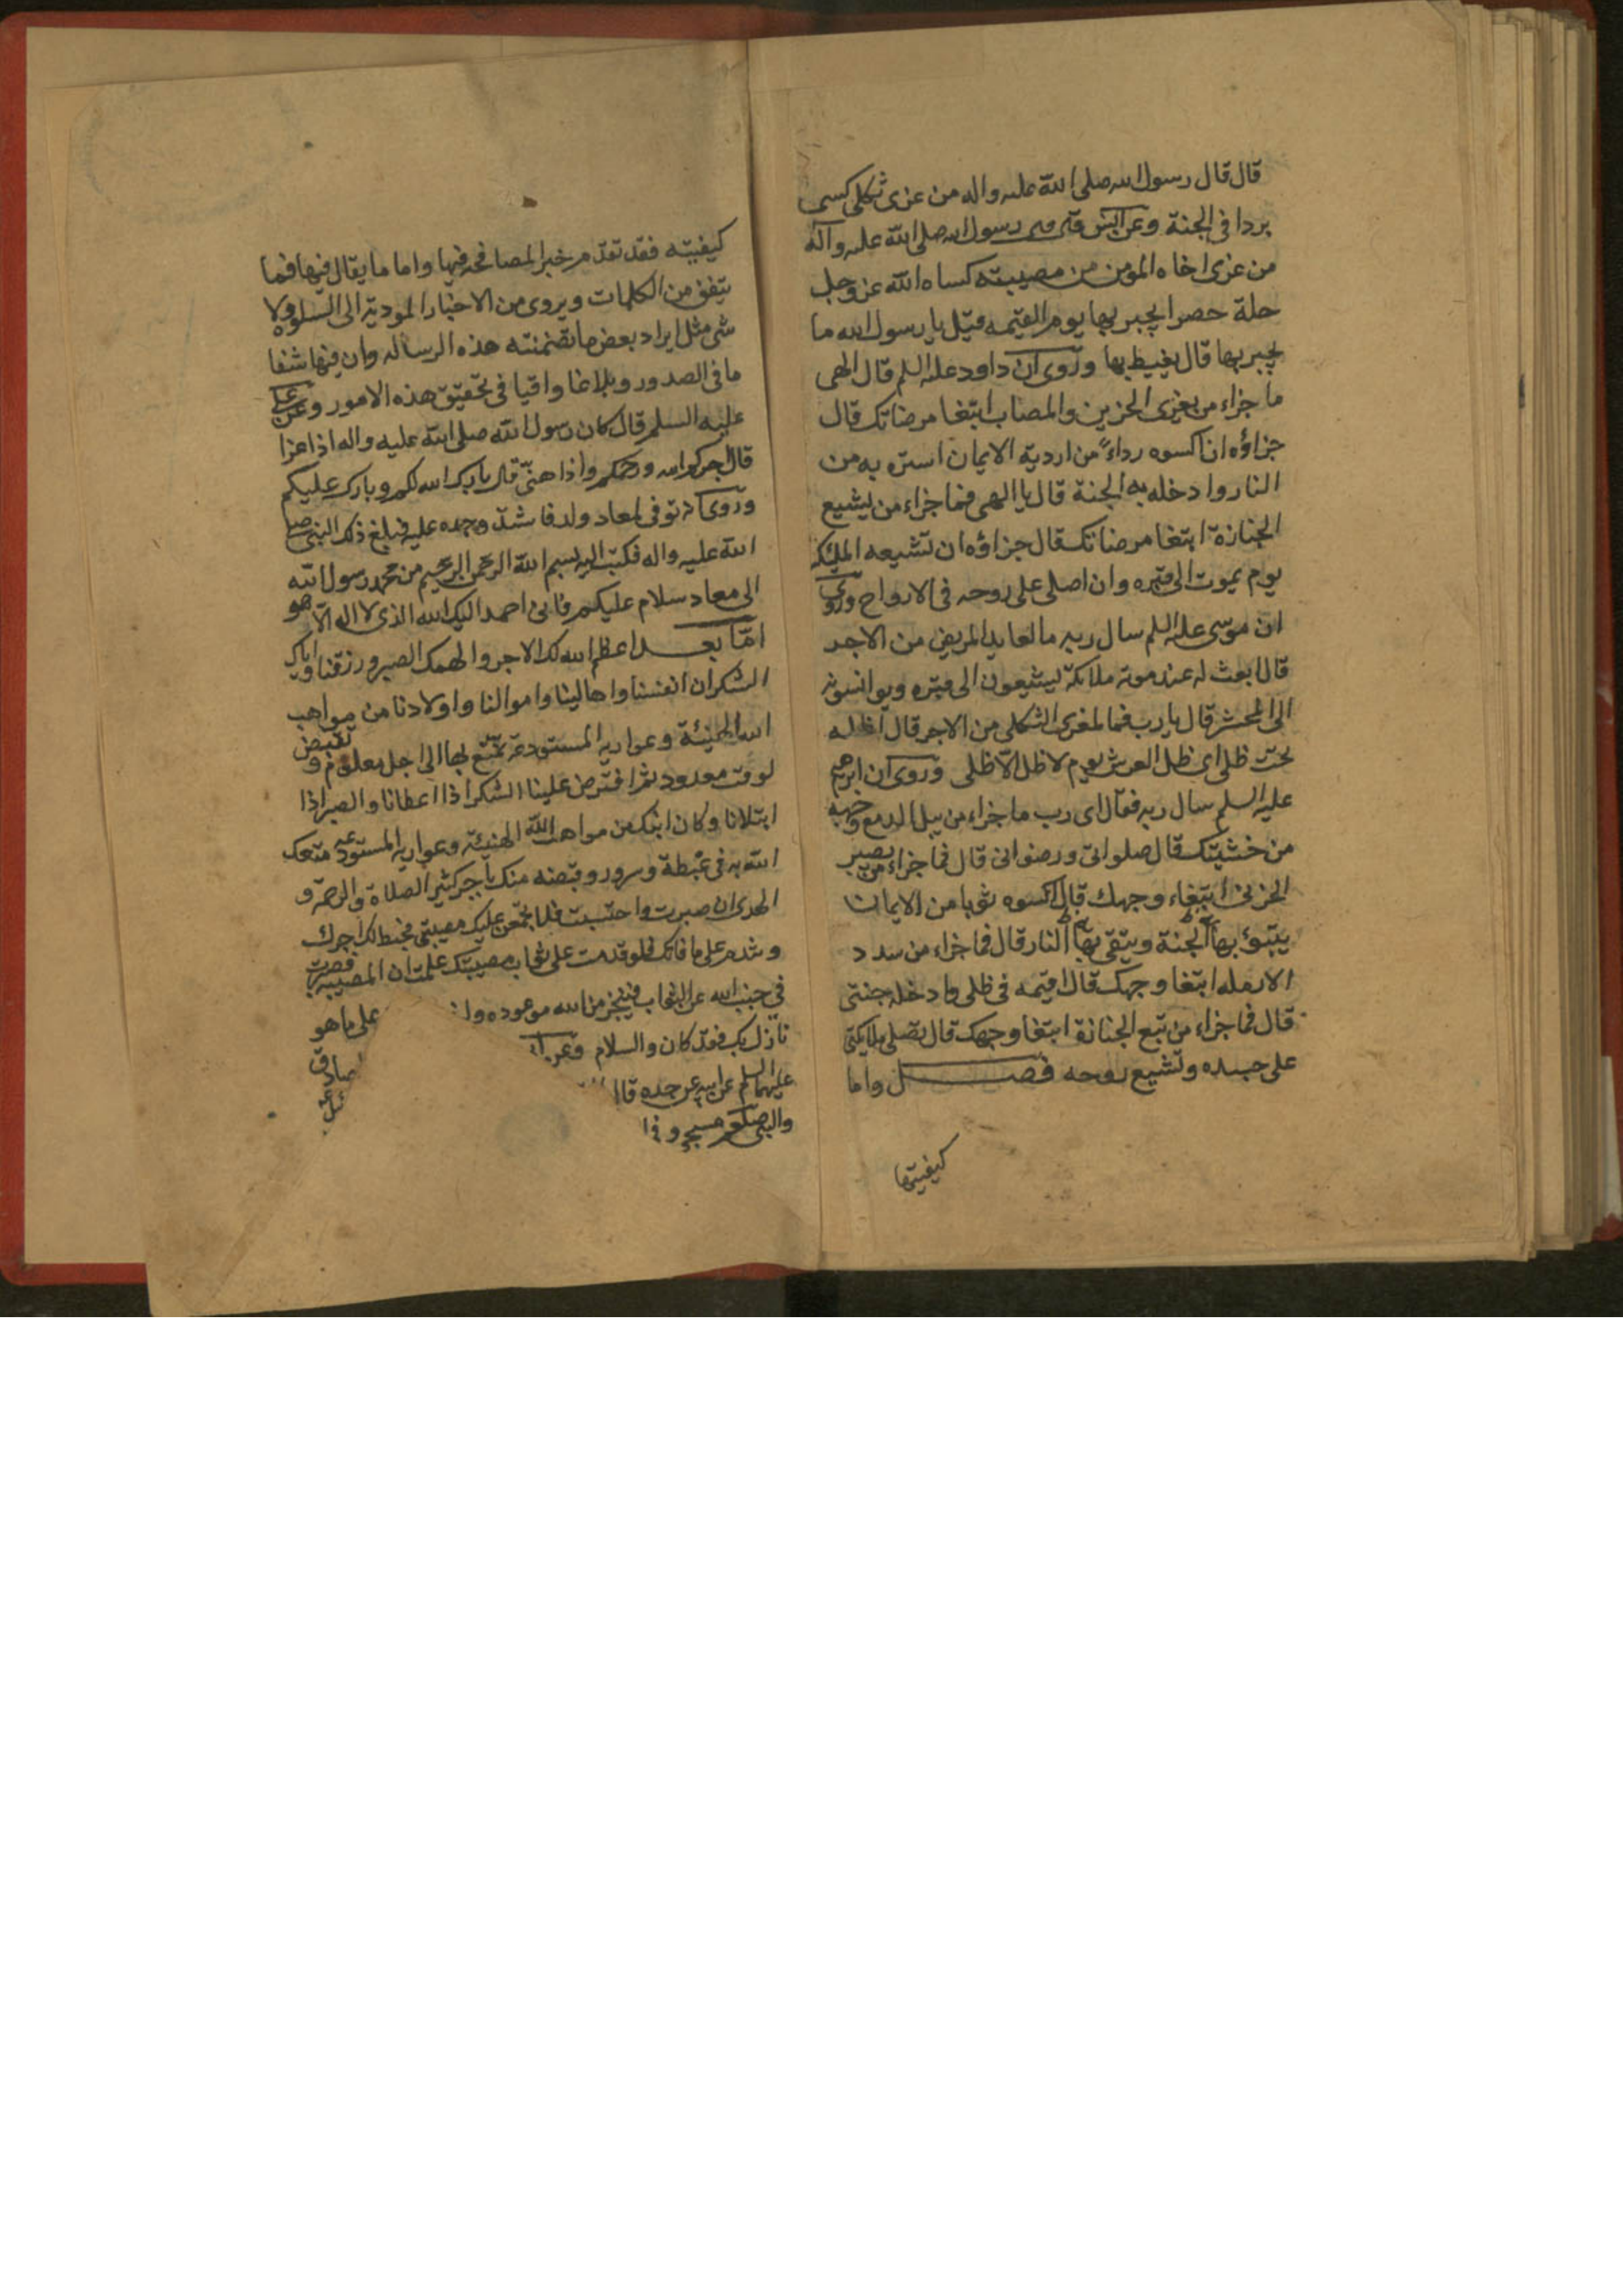 قال قال رسول الله صلى الله عليه واله من عزى ثكلى كسى
بردا في الجنة وعن انس قال قال رسول الله صلى الله عليه وآله
من عزى اخاه المومن من مصيبته كساه الله عز وجل
حلة خضرا يحبر بها يوم القيمه قيل يا رسول الله ما
يحبر بها قال يغبط بها وروى ان داود عليه السلم قال الهى
ما جزاء من يعزى الحزين والمصاب ابتغا مرضاتك قال
جزاؤه ان اكسوه رداءً من اردية الايمان استره به من
النار وادخله به الجنة قال يا الهى فما جزاء من يشيع
الجنازة ابتغا مرضاتك قال جزاؤه ان تشيعه الملئكة
يوم يموت الى قبره وان اصلى على روحه في الارواح وروى
ان موسى عليه السلم سال ربه ما لعايد المريض من الاجر
قال ابعث له عند موته ملائكة يشيعون الى قبره ويوانسونه
الى المحشر قال يا رب فما لمعزى الثكلى من الاجر قال اظله
تحت ظلى اى ظل العرش يوم لا ظل الّا ظلى وروى ان ابرهيم
عليه السلم سال ربه فقال اى رب ما جزاء من يبل الدمع وجهه
من خشيتك قال صلواتى ورضوانى قال فما جزاء من يصبر
الحزين ابتغاء وجهك قال اكسوه ثوبا من الايمان
يتبوّء بها الجنة ويتقى بها النار قال فما جزاء من سدد
الارمله ابتغا وجهك قال اقيمه في ظلى وادخله جنتى
قال فما جزاء من تبع الجنازة ابتغا وجهك قال تصلى ملايكتى
على جسده وتشيع روحه فصل واما
كيفيتها
كيفيته فقد تقدّم خبر المصافحه فيها واما ما يقال فيها فما
يتفق من الكلمات ويروى من الاخبار المودية الى السلوه ولا
شى مثل ايراد بعض ما تضمنته هذه الرساله وان فيها شفا
ما في الصدور وبلاغا وافيا في تحقيق هذه الامور وعن على
عليه السلم قال كان رسول الله صلى الله عليه واله اذا عزا
قال اجركم الله ورحمكم واذا هنّى قال بارك الله لكم وبارك عليكم
وروى انه توفى لمعاد ولد فاشتد وجده عليه فبلغ ذلك النبى صلى
الله عليه واله فكتب اليه بسم الله الرحمن الرحيم من محمد رسول الله
الى معاد سلام عليكم فانى احمد اليك الله الذى لا اله الّا هو
امّا بعد اعظم الله لك الاجر والهمك الصبر ورزقنا واياك
الشكر ان انفسنا واهالينا واموالنا واولادنا من مواهب
الله الهنيئة وعواريه المستودعة نمتّع بها الى اجل معلوم وتقبض
لوقت معدود ثم افترض علينا الشكر اذا اعطانا والصبر اذا
ابتلانا وكان ابنك من مواهب الله الهنيئة وعواريه المستودعه متعك
الله به في غبطة وسرور وقبضه منك باجر كثير الصلاة والرحمة و
الهدى ان صبرت واحتسبت فلا تجمعن عليك مصيبتى فيحبط لك اجرك
وتندم على ما فاتك فلو قدمت على ثواب مصيبتك علمت ان المصيبة قصرت
في جنب الله عن الثواب فتنجز من الله موعوده على ما هو
نازل بك فقد كان والسلام وعن صادق
عليهما السلم عن ابيه عن جده
والنبى صلعم مسجى